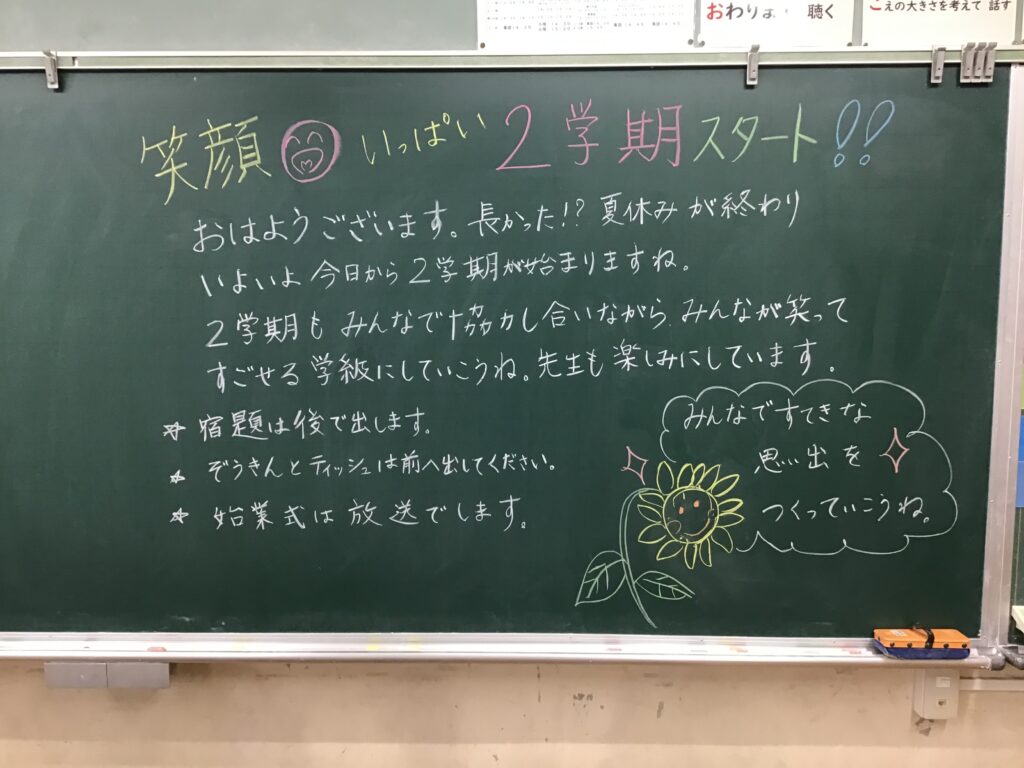 おわりまで 聴く
こえの大きさを考えて 話す
笑顔 いっぱい 2学期スタート!!
おはようございます。長かった!? 夏休みが終わり
いよいよ今日から2学期が始まりますね。
2学期もみんなで協力し合いながら、みんなが笑って
すごせる学級にしていこうね。先生も楽しみにしています。
☆ 宿題は後で出します。
☆ ぞうきんとティッシュは前へ出してください。
☆ 始業式は放送でします。
みんなですてきな
思い出を
つくっていこうね。